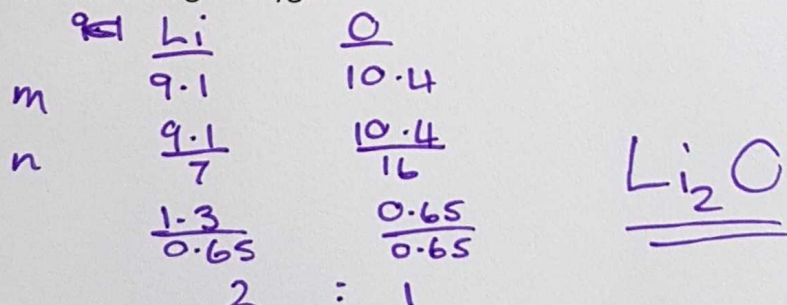 Li O
m 9.1 10.4
n 9.1/7 10.4/16
1.3/0.65 0.65/0.65
2 : 1
Li₂O